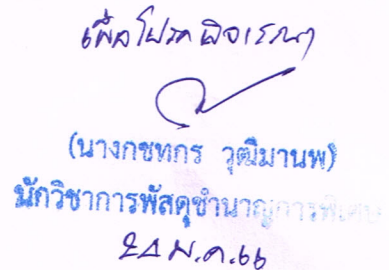 เพื่อโปรดพิจารณา
(นางกชทกร วุฒิมานพ)
นักวิชาการพัสดุชำนาญการพิเศษ
24 ม.ค.66